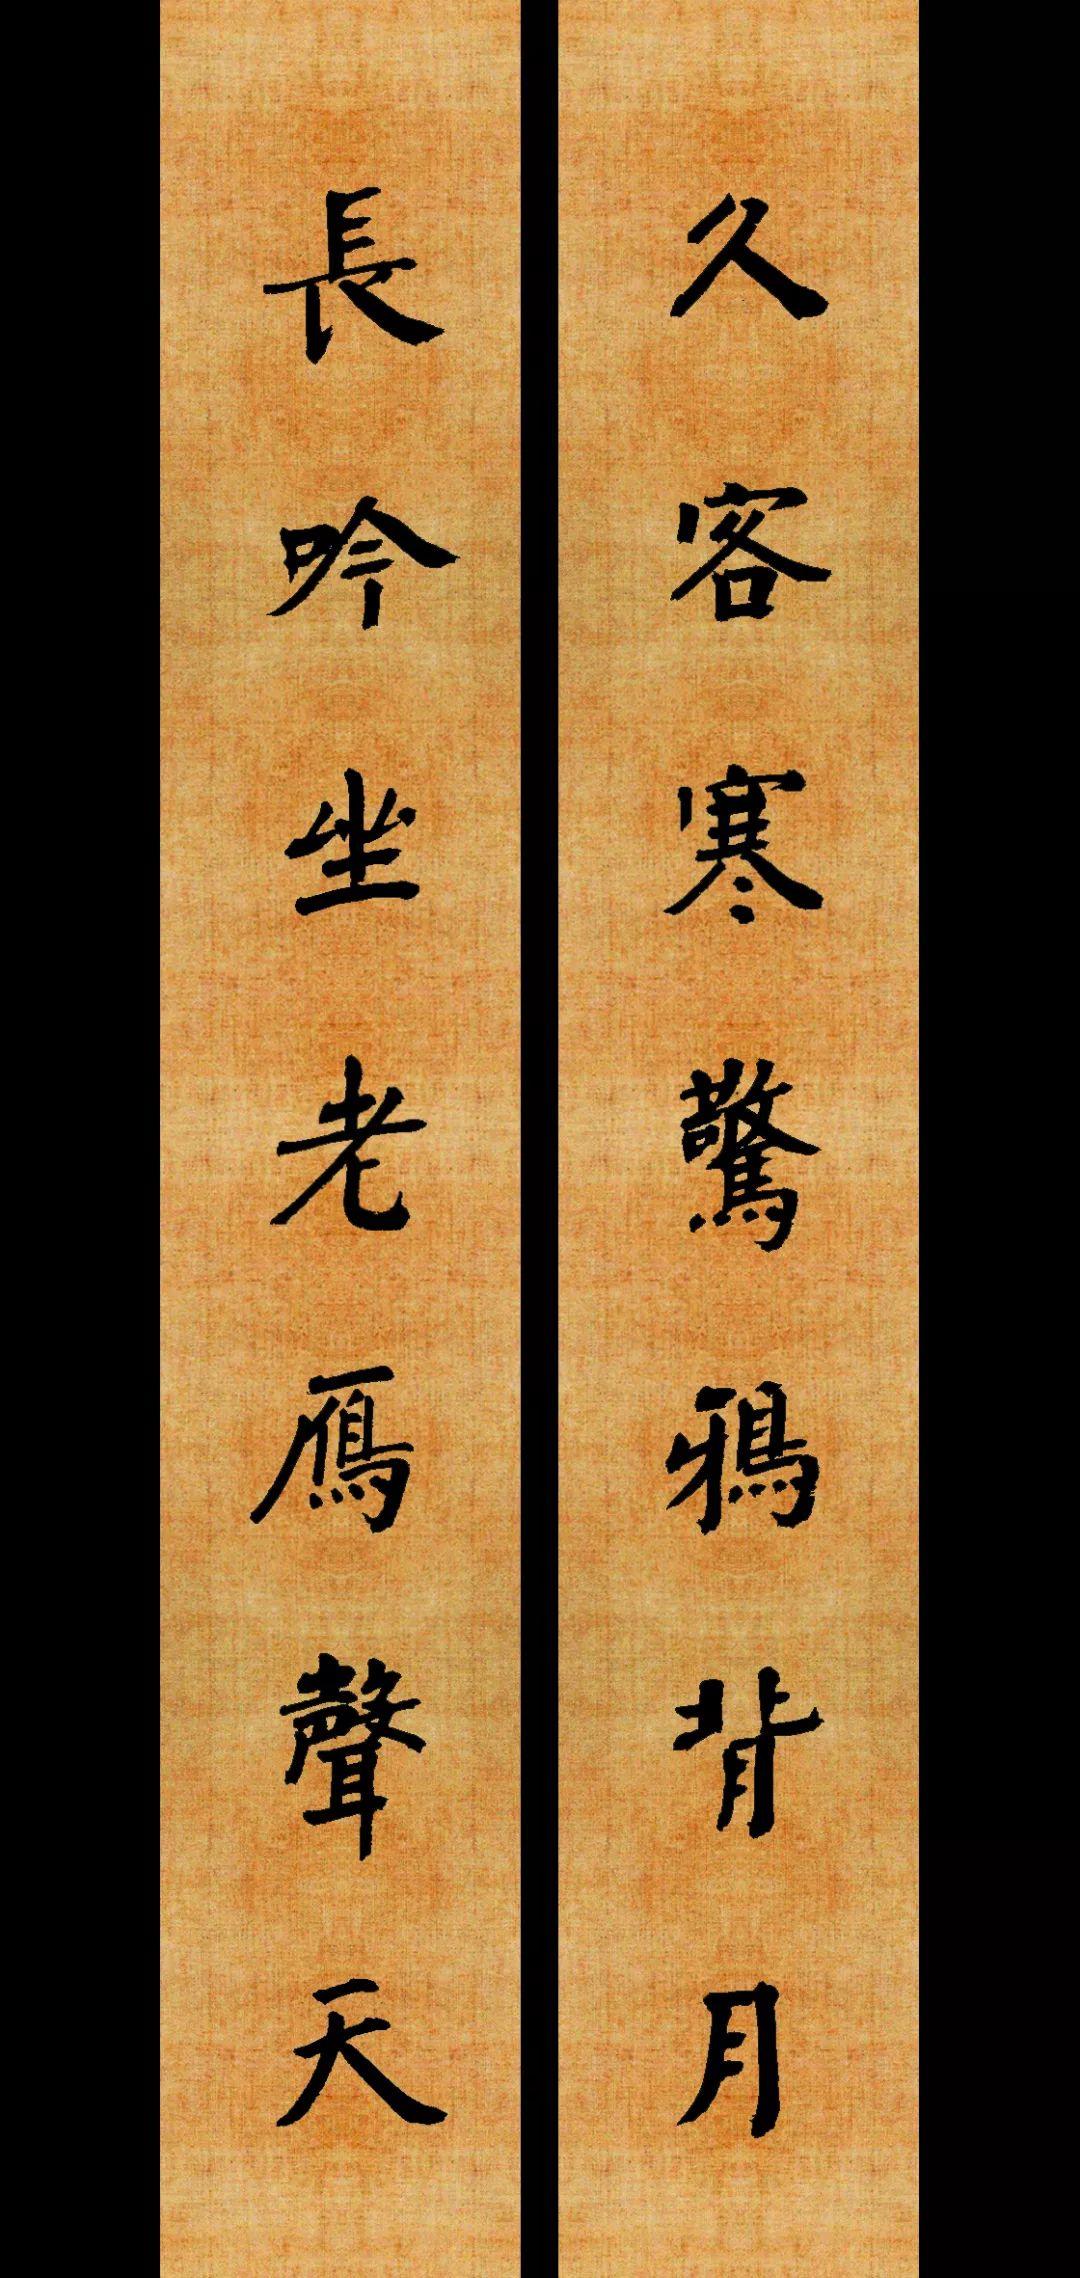 久客寒驚鴉背月
長吟坐老鴈聲天